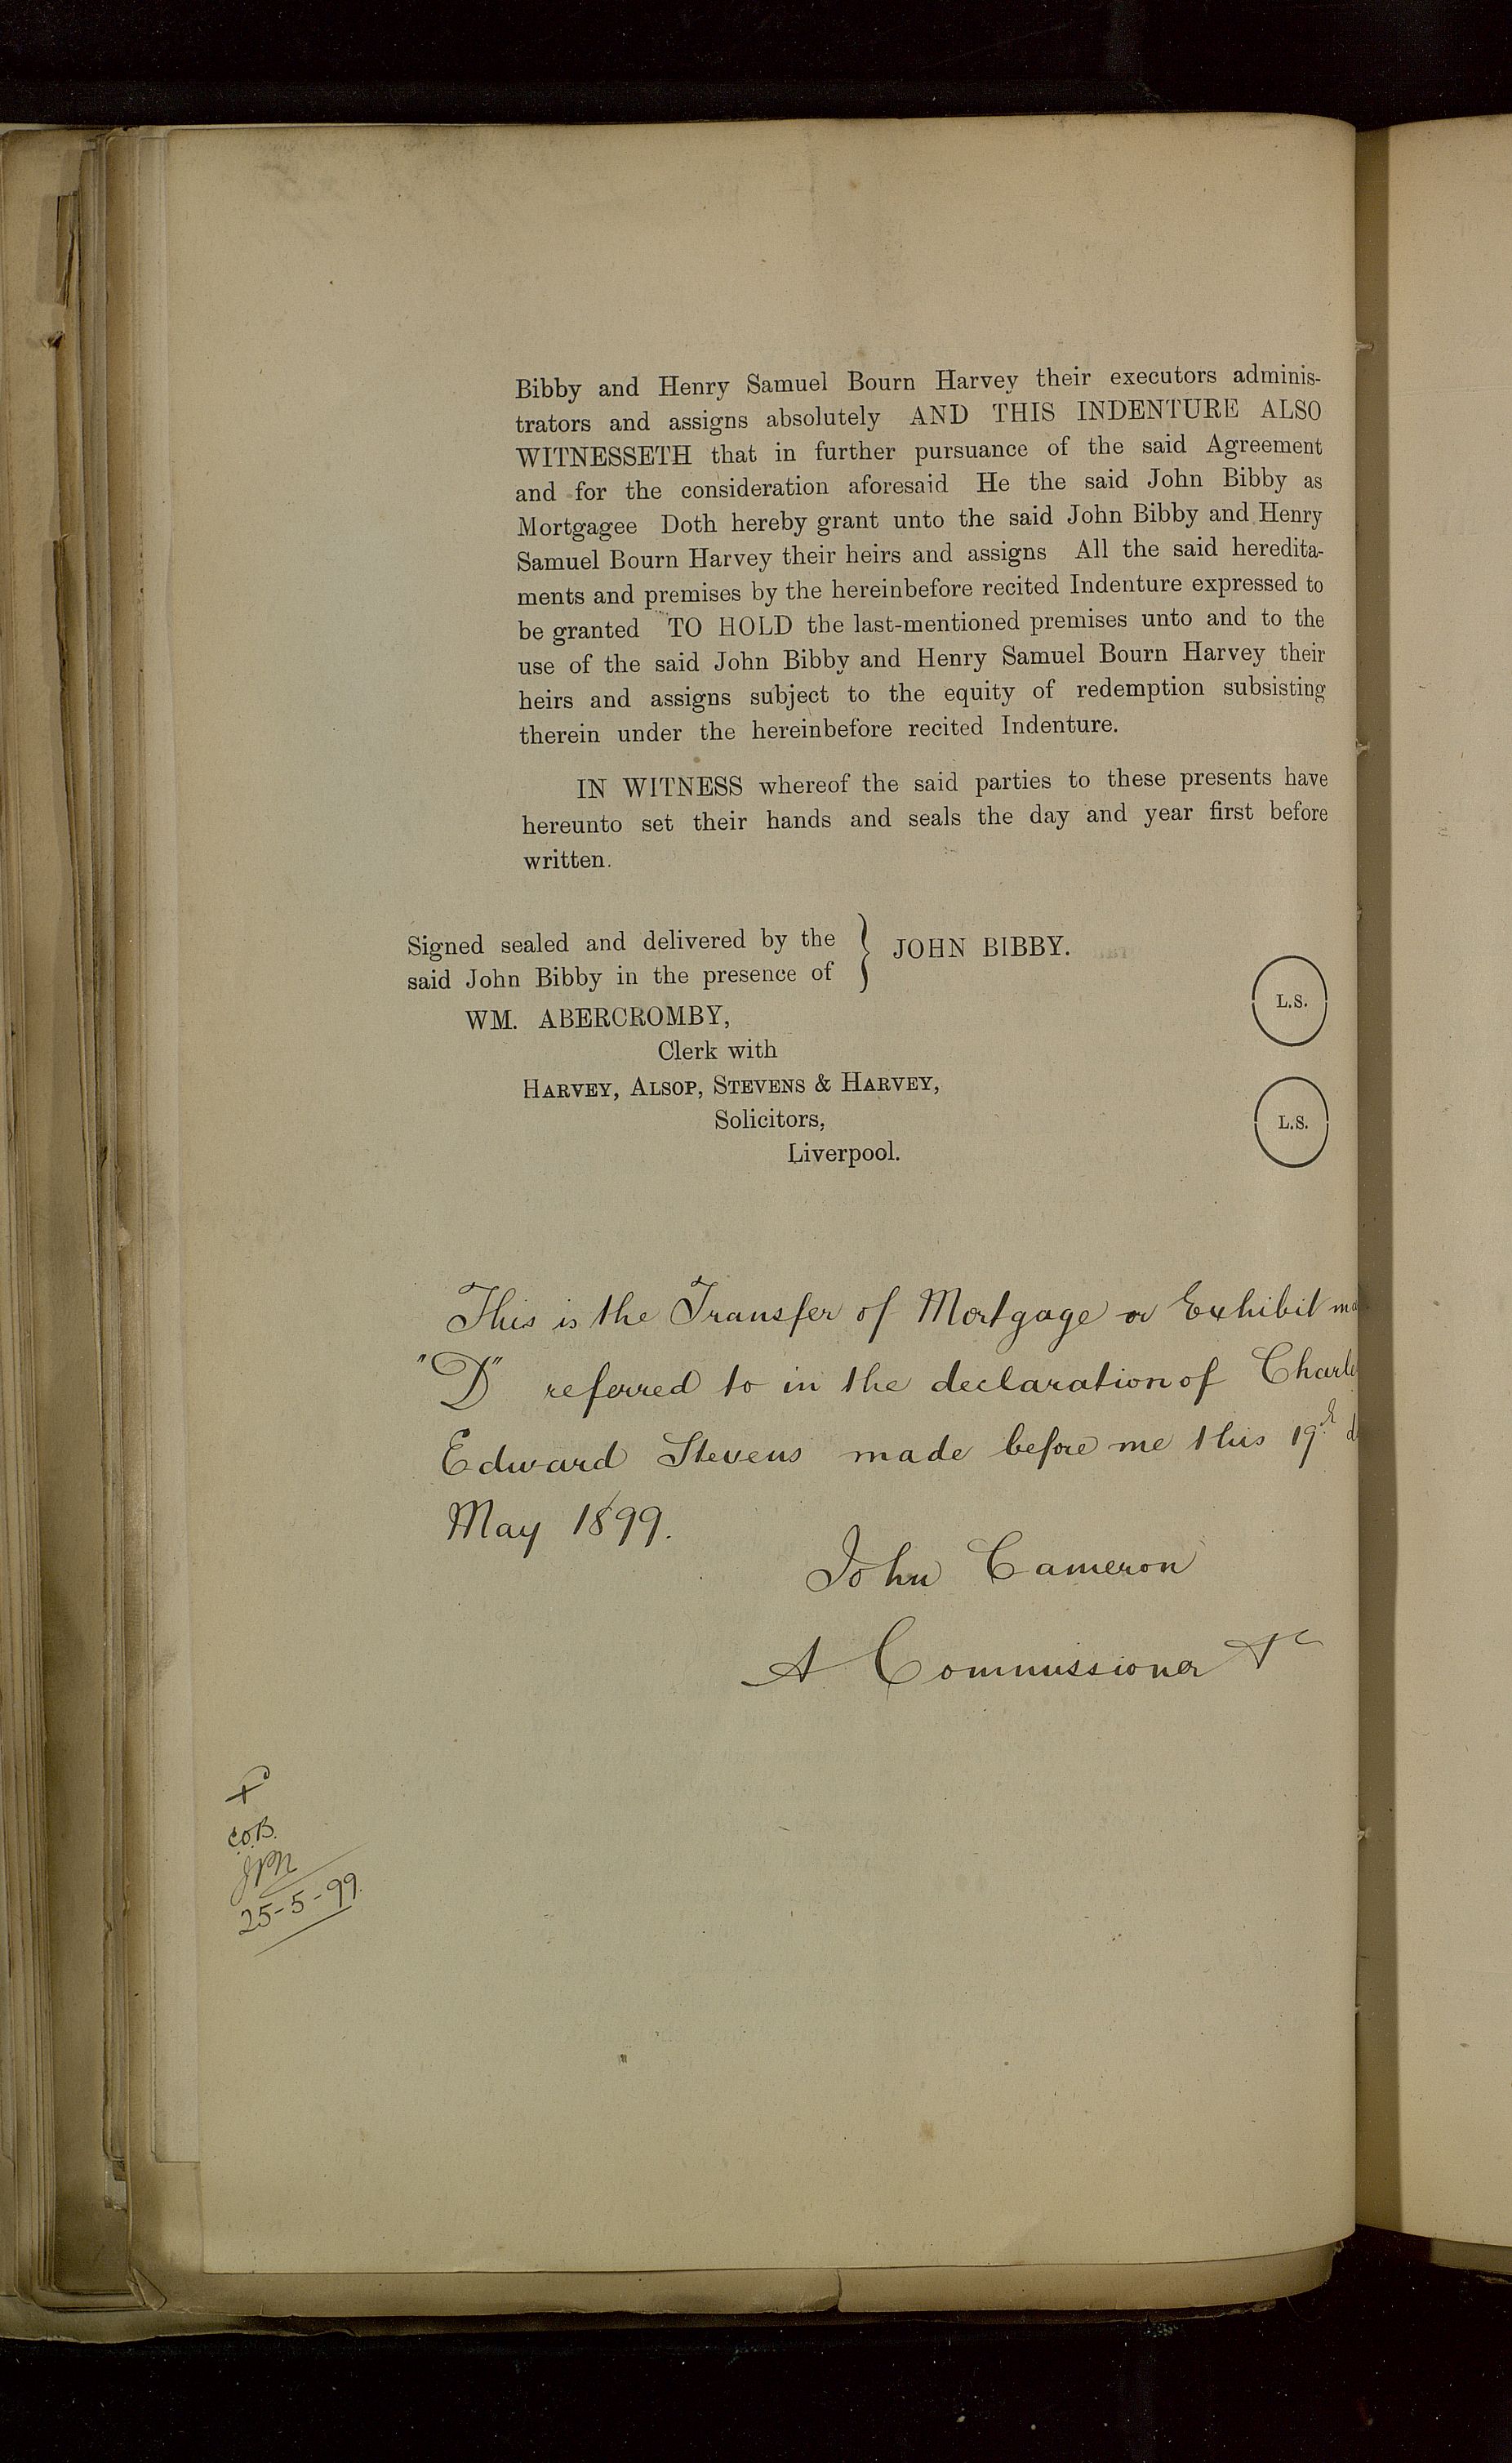 Bibby and Henry Samuel Bourn Harvey their executors adminis-
trators and assigns absolutely AND THIS INDENTURE ALSO
WITNESSETH that in further pursuance of the said Agreement
and for the consideration aforesaid He the said John Bibby as
Mortgagee Doth hereby grant unto the said John Bibby and Henry
Samuel Bourn Harvey their heirs and assigns All the said heredita-
ments and premises by the hereinbefore recited Indenture expressed to
be granted TO HOLD the last-mentioned premises unto and to the
use of the said John Bibby and Henry Samuel Bourn Harvey their
heirs and assigns subject to the equity of redemption subsisting
therein under the hereinbefore recited Indenture.
IN WITNESS whereof the said parties to these presents have
hereunto set their hands and seals the day and year first before
written.
Signed sealed and delivered by the
said John Bibby in the presence of
} JOHN BIBBY.
WM. ABERCROMBY,
Clerk with
HARVEY, ALSOP, STEVENS & HARVEY,
Solicitors,
Liverpool.
L.S.
L.S.
This is the Transfer of Mortgage or Exhibit
"D" referred to in the declaration of Charle
Edward Stevens made before me this 19th d
May 1899.
John Cameron
A Commissioner &c
C.O.B.
25-5-99.